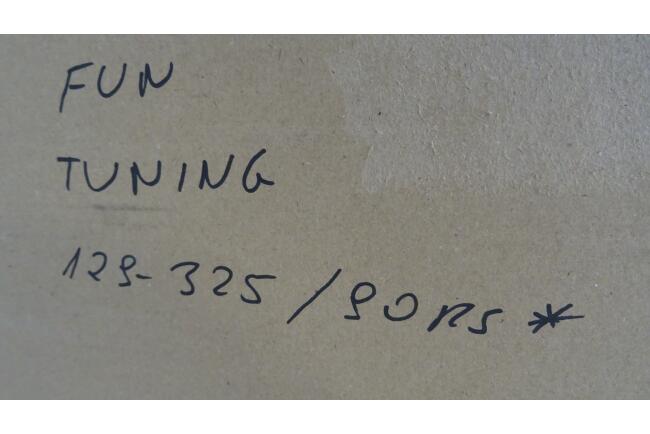 FUN
TUNING
129-325 / 90 RS *